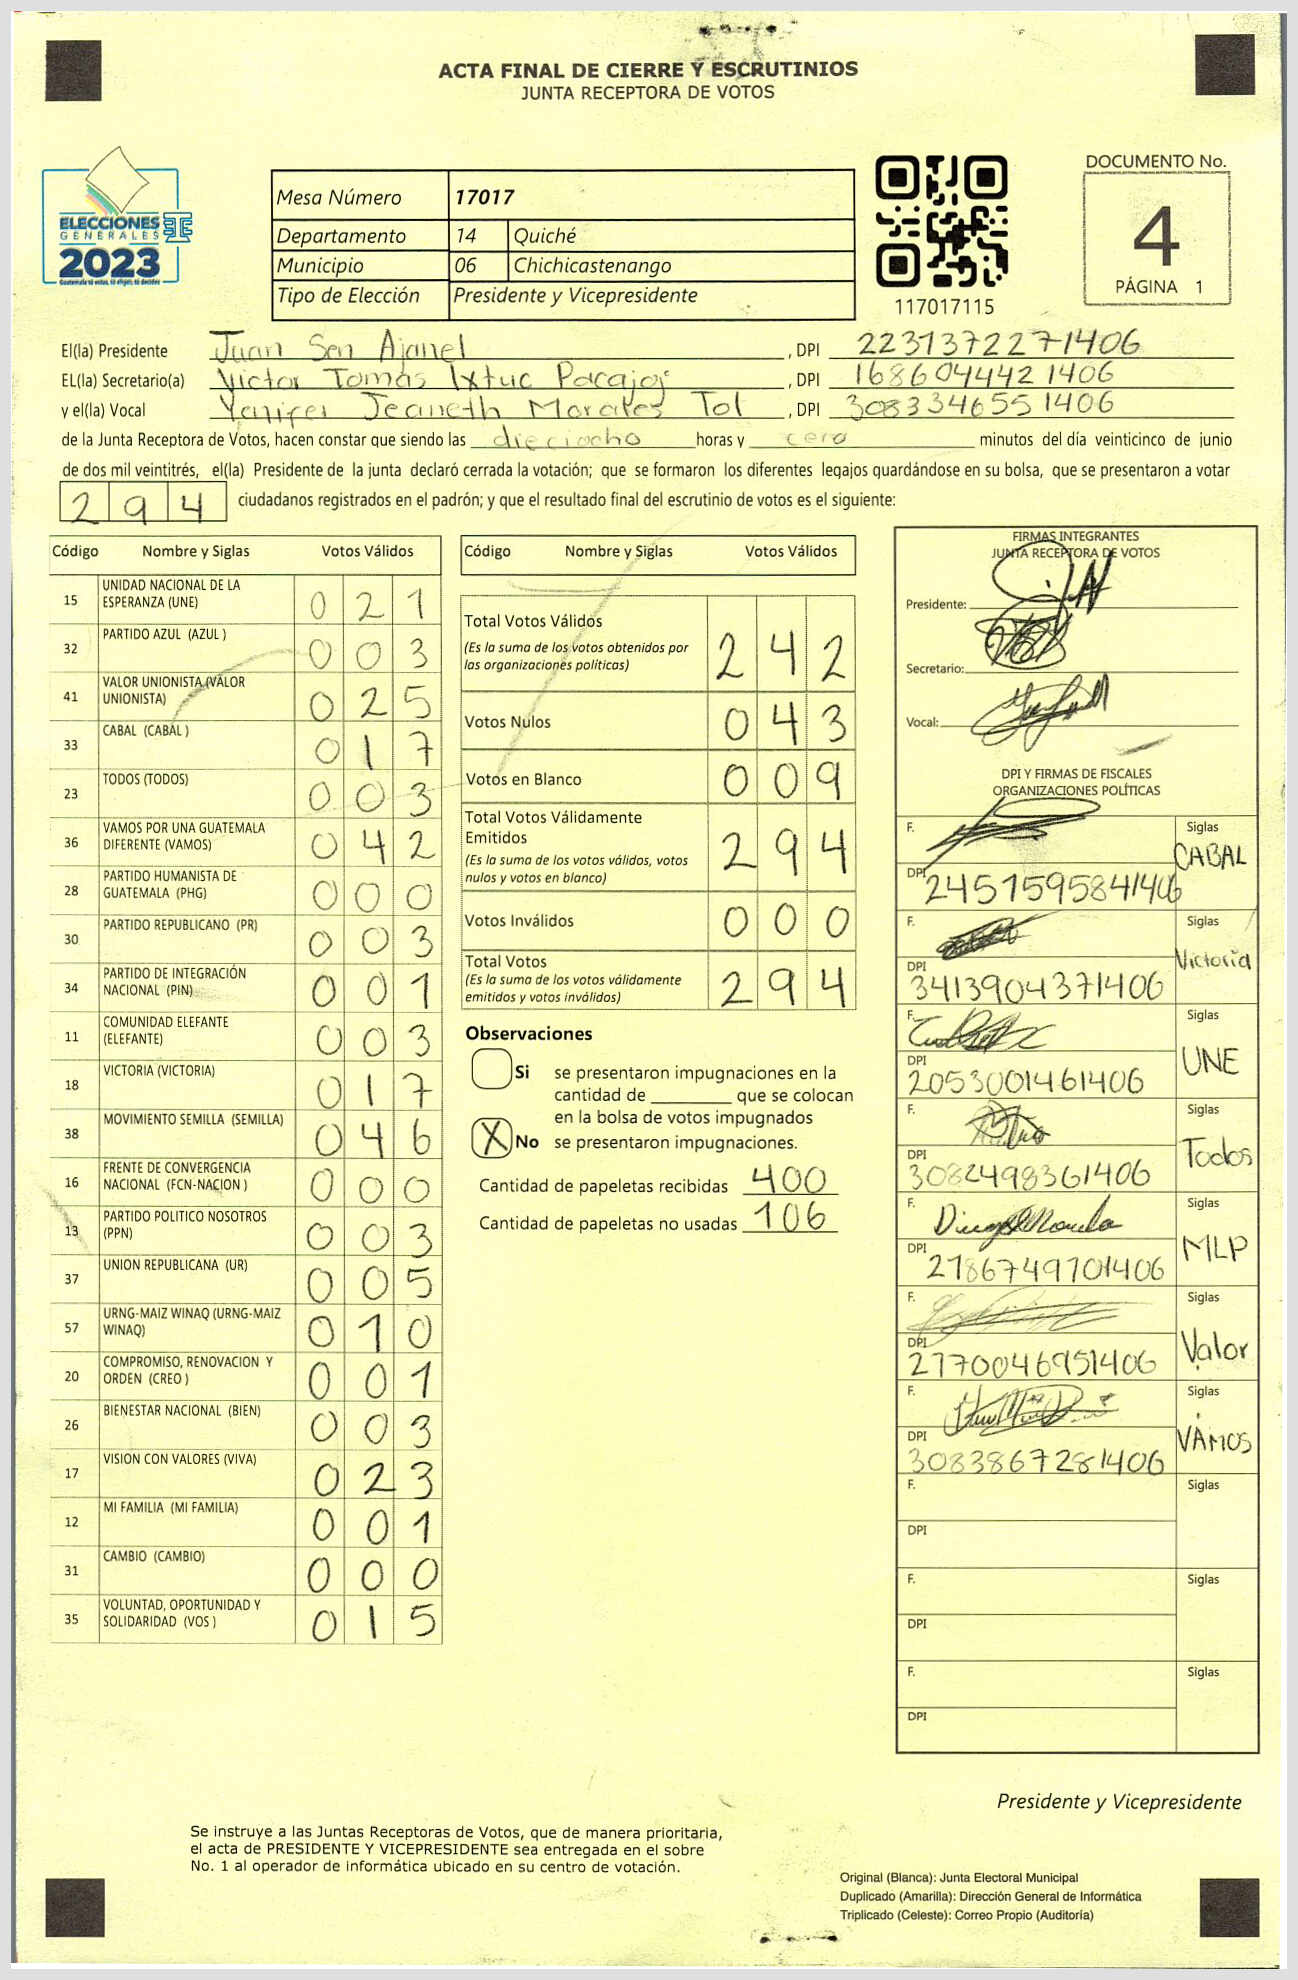 ACTA FINAL DE CIERRE Y ESCRUTINIOS
JUNTA RECEPTORA DE VOTOS
ELECCIONES
GENERALES
2023
Guatemala tú votas, tú eliges, tú decides
Mesa Número 17017
Departamento 14 Quiché
Municipio 06 Chichicastenango
Tipo de Elección Presidente y Vicepresidente
117017115
DOCUMENTO No.
4
PÁGINA 1
El(la) Presidente Juan Sen Ajanel, DPI 2231372271406
EL(la) Secretario(a) Victor Tomas Ixtuc Pacajoj, DPI 1686044421406
y el(la) Vocal Yenifer Jeaneth Morales Tol, DPI 3083346551406
de la Junta Receptora de Votos, hacen constar que siendo las dieciocho horas y cero minutos del día veinticinco de junio
de dos mil veintitrés, el(la) Presidente de la junta declaró cerrada la votación; que se formaron los diferentes legajos guardándose en su bolsa, que se presentaron a votar
294 ciudadanos registrados en el padrón; y que el resultado final del escrutinio de votos es el siguiente:
Código Nombre y Siglas Votos Válidos
15 UNIDAD NACIONAL DE LA ESPERANZA (UNE) 021
32 PARTIDO AZUL (AZUL ) 003
41 VALOR UNIONISTA (VALOR UNIONISTA) 025
33 CABAL (CABAL ) 017
23 TODOS (TODOS) 003
36 VAMOS POR UNA GUATEMALA DIFERENTE (VAMOS) 042
28 PARTIDO HUMANISTA DE GUATEMALA (PHG) 000
30 PARTIDO REPUBLICANO (PR) 003
34 PARTIDO DE INTEGRACIÓN NACIONAL (PIN) 001
11 COMUNIDAD ELEFANTE (ELEFANTE) 003
18 VICTORIA (VICTORIA) 017
38 MOVIMIENTO SEMILLA (SEMILLA) 046
16 FRENTE DE CONVERGENCIA NACIONAL (FCN-NACION ) 000
13 PARTIDO POLITICO NOSOTROS (PPN) 003
37 UNION REPUBLICANA (UR) 005
57 URNG-MAIZ WINAQ (URNG-MAIZ WINAQ) 010
20 COMPROMISO, RENOVACION Y ORDEN (CREO ) 001
26 BIENESTAR NACIONAL (BIEN) 003
17 VISION CON VALORES (VIVA) 023
12 MI FAMILIA (MI FAMILIA) 001
31 CAMBIO (CAMBIO) 000
35 VOLUNTAD, OPORTUNIDAD Y SOLIDARIDAD (VOS ) 015
Código Nombre y Siglas Votos Válidos
Total Votos Válidos 242
(Es la suma de los votos obtenidos por
las organizaciones políticas)
Votos Nulos 043
Votos en Blanco 009
Total Votos Válidamente
Emitidos 294
(Es la suma de los votos válidos, votos
nulos y votos en blanco)
Votos Inválidos 000
Total Votos 294
(Es la suma de los votos válidamente
emitidos y votos inválidos)
Observaciones
Si se presentaron impugnaciones en la
cantidad de ________ que se colocan
en la bolsa de votos impugnados
X No se presentaron impugnaciones.
Cantidad de papeletas recibidas 400
Cantidad de papeletas no usadas 106
FIRMAS INTEGRANTES
JUNTA RECEPTORA DE VOTOS
Presidente:
Secretario:
Vocal:
DPI Y FIRMAS DE FISCALES
ORGANIZACIONES POLÍTICAS
F. Siglas CABAL
DPI 2457595841406
F. Siglas Victoria
DPI 3413904371406
F. Siglas UNE
DPI 2053001461406
F. Siglas Todos
DPI 3082498361406
F. Siglas MLP
DPI 2786749701406
F. Siglas Valor
DPI 2770046951406
F. Siglas VAMOS
DPI 3083867281406
F. Siglas
DPI
F. Siglas
DPI
F. Siglas
DPI
Presidente y Vicepresidente
Se instruye a las Juntas Receptoras de Votos, que de manera prioritaria,
el acta de PRESIDENTE Y VICEPRESIDENTE sea entregada en el sobre
No. 1 al operador de informática ubicado en su centro de votación.
Original (Blanca): Junta Electoral Municipal
Duplicado (Amarilla): Dirección General de Informática
Triplicado (Celeste): Correo Propio (Auditoría)